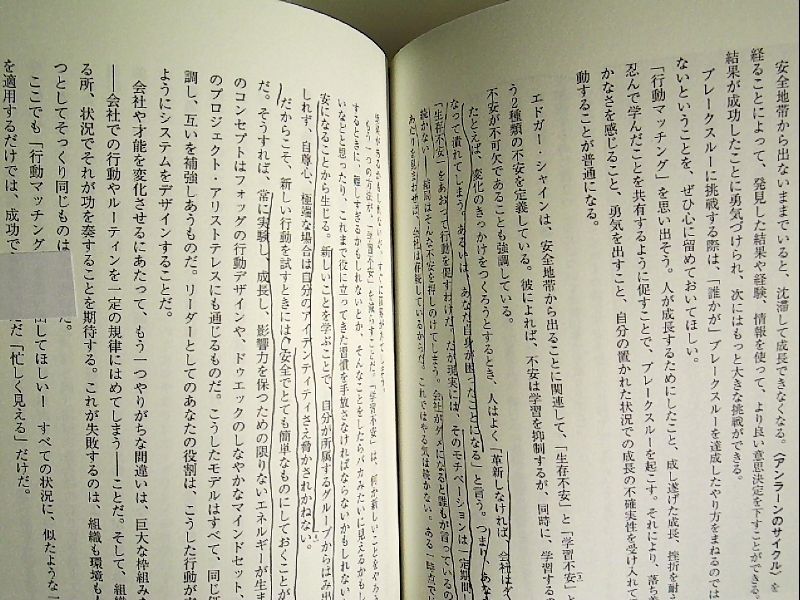 安全地帯から出ないままでいると、沈滞して成長できなくなる。〈アンラーンのサイクル〉を
経ることによって、発見した結果や経験、情報を使って、より良い意思決定を下すことができる。
結果が成功したことに勇気づけられ、次にはもっと大きな挑戦ができる。
ブレークスルーに挑戦する際は、「誰かが」ブレークスルーを達成したやり方をまねるのでは
ないということを、ぜひ心に留めておいてほしい。
「行動マッチング」を思い出そう。人が成長するためにしたこと、成し遂げた成長、挫折を耐え
忍んで学んだことを共有するように促すことで、ブレークスルーを起こす。それにより、落ち
かなさを感じること、勇気を出すこと、自分の置かれた状況での成長の不確実性を受け入れて
動することが普通になる。
エドガー・シャインは、安全地帯から出ることに関連して、「生存不安」と「学習不安」とい
う2種類の不安を定義している。彼によれば、不安は学習を抑制するが、同時に、学習する
不安が不可欠であることも強調している。
たとえば、変化のきっかけをつくろうとするとき、人はよく「革新しなければ、会社はダ
なって潰れてしまう。あるいは、あなた自身が困ったことになる」と言う。つまり、あな
「生存不安」をあおって行動を促すわけだ。だが現実には、そのモチベーションは一定期間
続かない。結局はそんな不安を押しのけてしまう。会社がダメになると誰もが言っているの
あたりを見まわせば、会社は存続しているからだ。これではやる気は続かない。ある時点で
もう一つの方法が、「学習不安」を減らすことだ。「学習不安」は、何か新しいことをやろう
するときに、難しすぎるかもしれないとか、そんなことをしたらバカみたいに見えるかもし
いなどと思ったり、これまで役に立ってきた習慣を手放さなければならないかもしれない
安になることから生じる。新しいことを学ぶことで、自分が所属するグループからはみ出
しれず、自尊心、極端な場合は自分のアイデンティティさえ脅かされかねない。
だからこそ、新しい行動を試すときには、安全でとても簡単なものにしておくことが
だ。そうすれば、常に実験し、成長し、影響力を保つための限りないエネルギーが生ま
のコンセプトはフォッグの行動デザインや、ドゥエックのしなやかなマインドセット、
のプロジェクト・アリストテレスにも通じるものだ。こうしたモデルはすべて、同じ
調し、互いを補強しあうものだ。リーダーとしてのあなたの役割は、こうした行動が
ようにシステムをデザインすることだ。
会社や才能を変化させるにあたって、もう一つやりがちな間違いは、巨大な枠組み
――会社での行動やルーティンを一定の規律にはめてしまう――ことだ。そして、組織
る所、状況でそれが功を奏することを期待する。これが失敗するのは、組織も環境も
つとしてそっくり同じものは だ。
ここでも「行動マッチング 出してほしい! すべての状況に、似たような
を適用するだけでは、成功で だ「忙しく見える」だけだ。